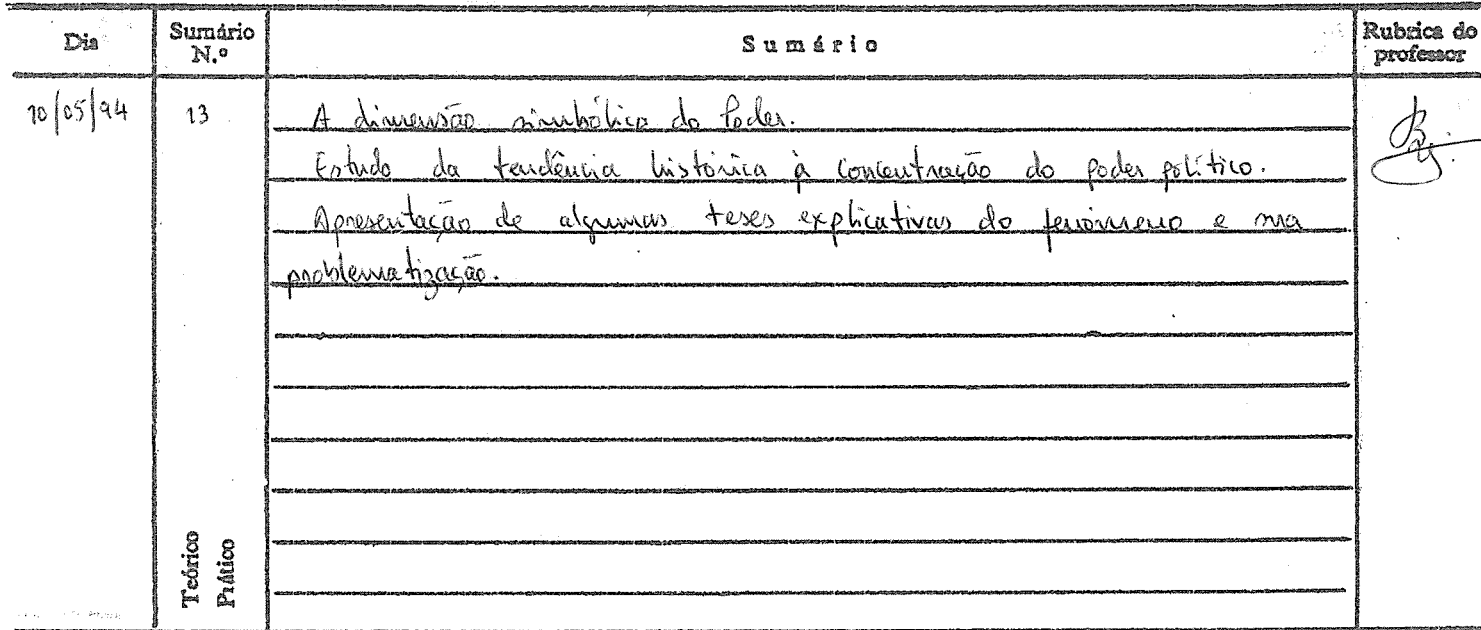 Dia
Sumário N.º
Sumário
Rubrica do professor
10/05/94
13
A dimensão simbólica do Poder.
Estudo da tendência histórica à concentração do poder político.
Apresentação de algumas teses explicativas do fenómeno e sua
problematização.
Teórico
Prático